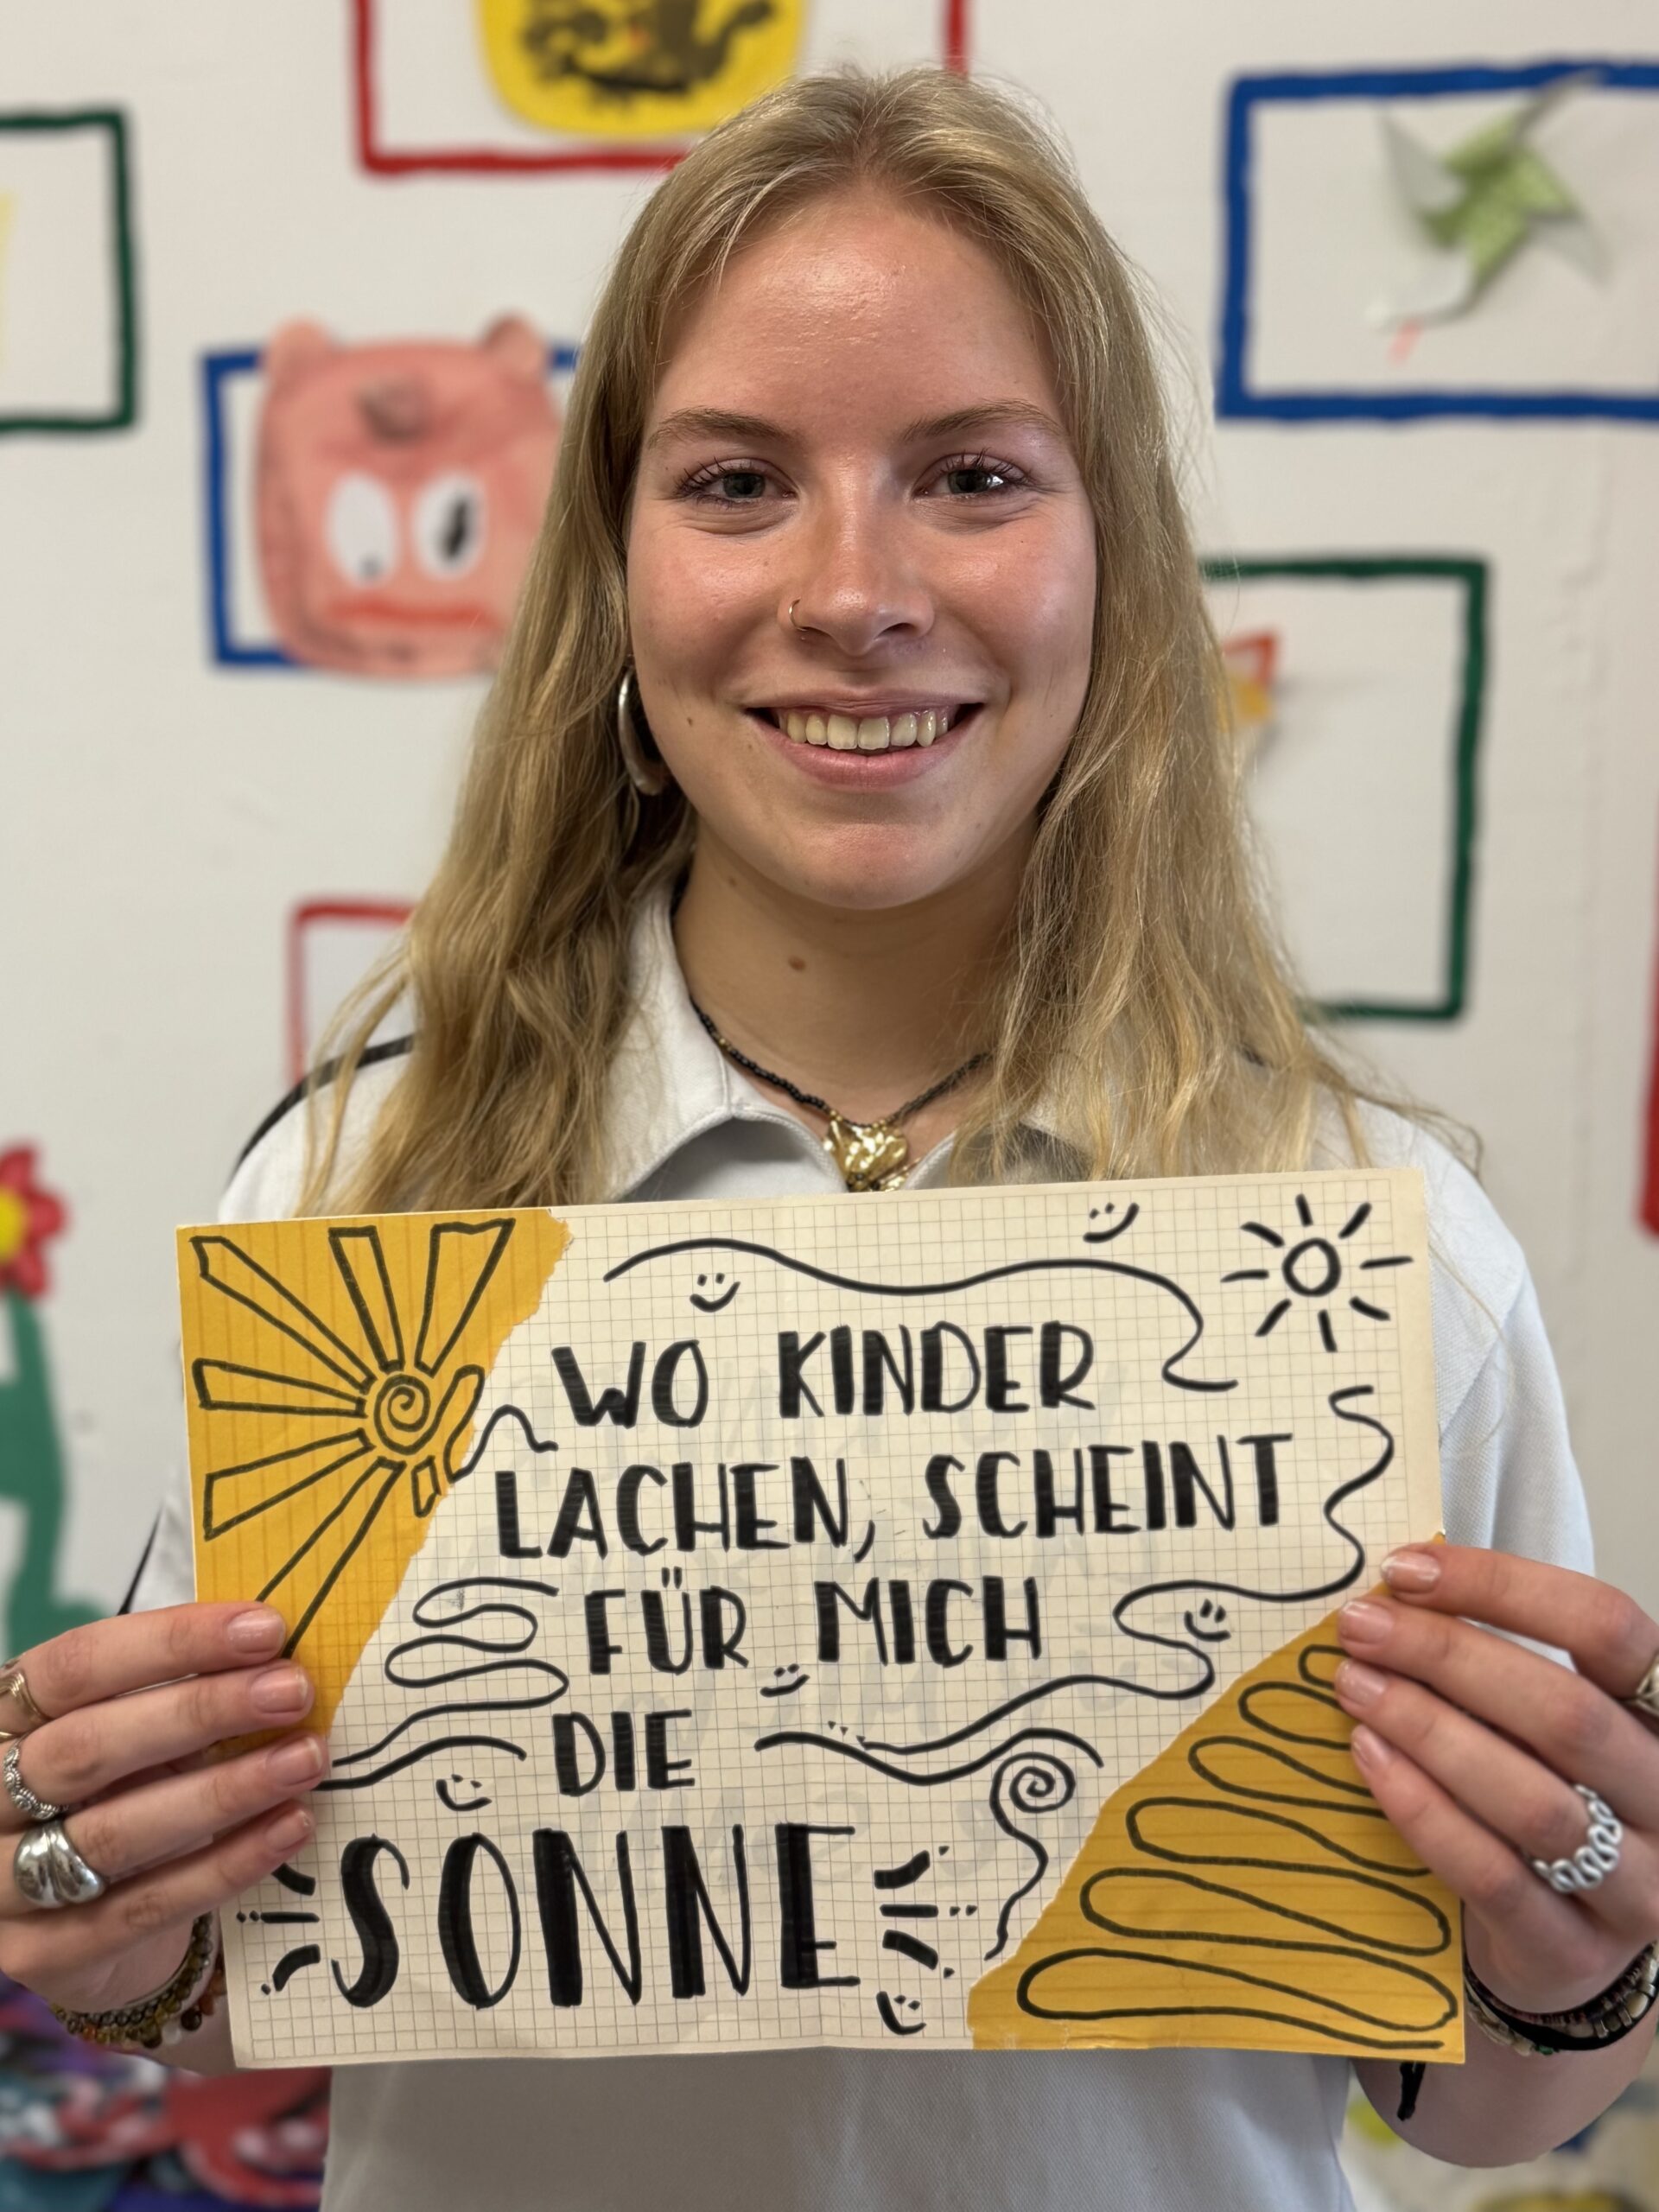 WO KINDER
LACHEN, SCHEINT
FÜR MICH
DIE
SONNE